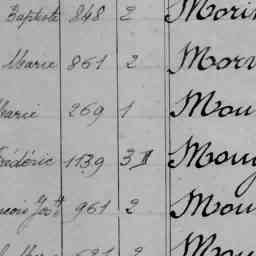 Baptiste 848 2 Mori
Marie 861 2 Morv
Marie 269 1 Mou
Frédéric 1139 3 II Mou
961 2 Mou
2 Mou